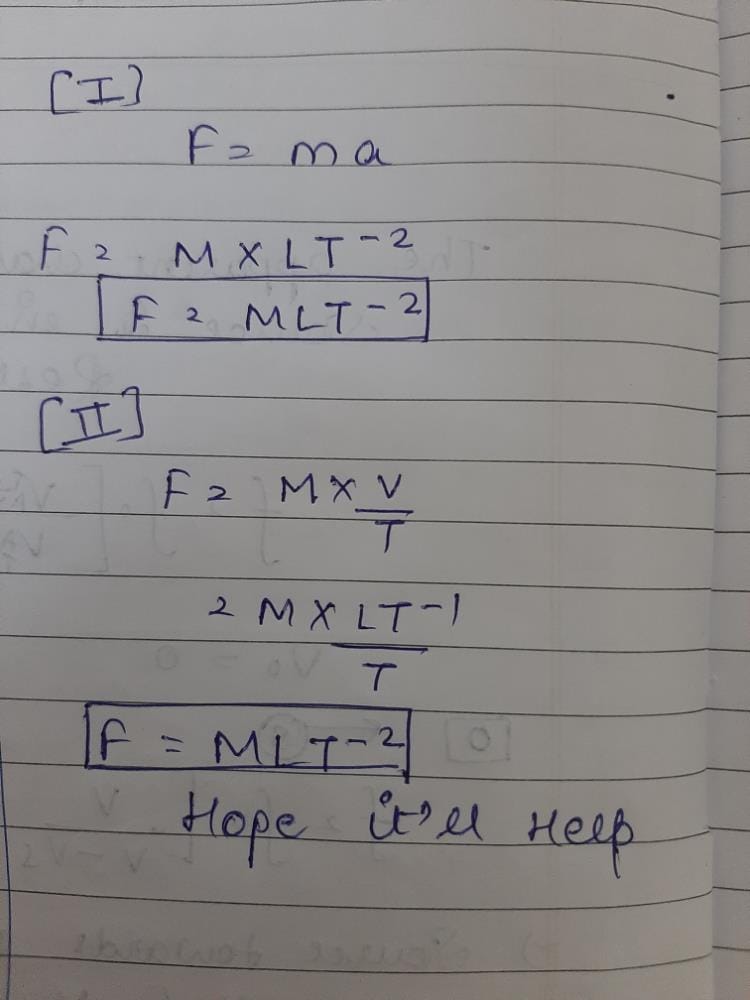 [I]
F = ma
F = M × LT⁻²
F = MLT⁻²
[II]
F = M × V/T
= M × LT⁻¹/T
F = MLT⁻²
Hope it'll Help